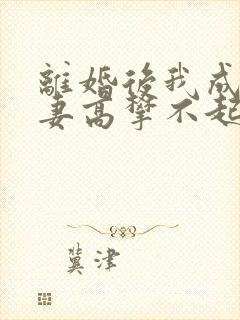 離婚後我成
妻高攀不起
冀津